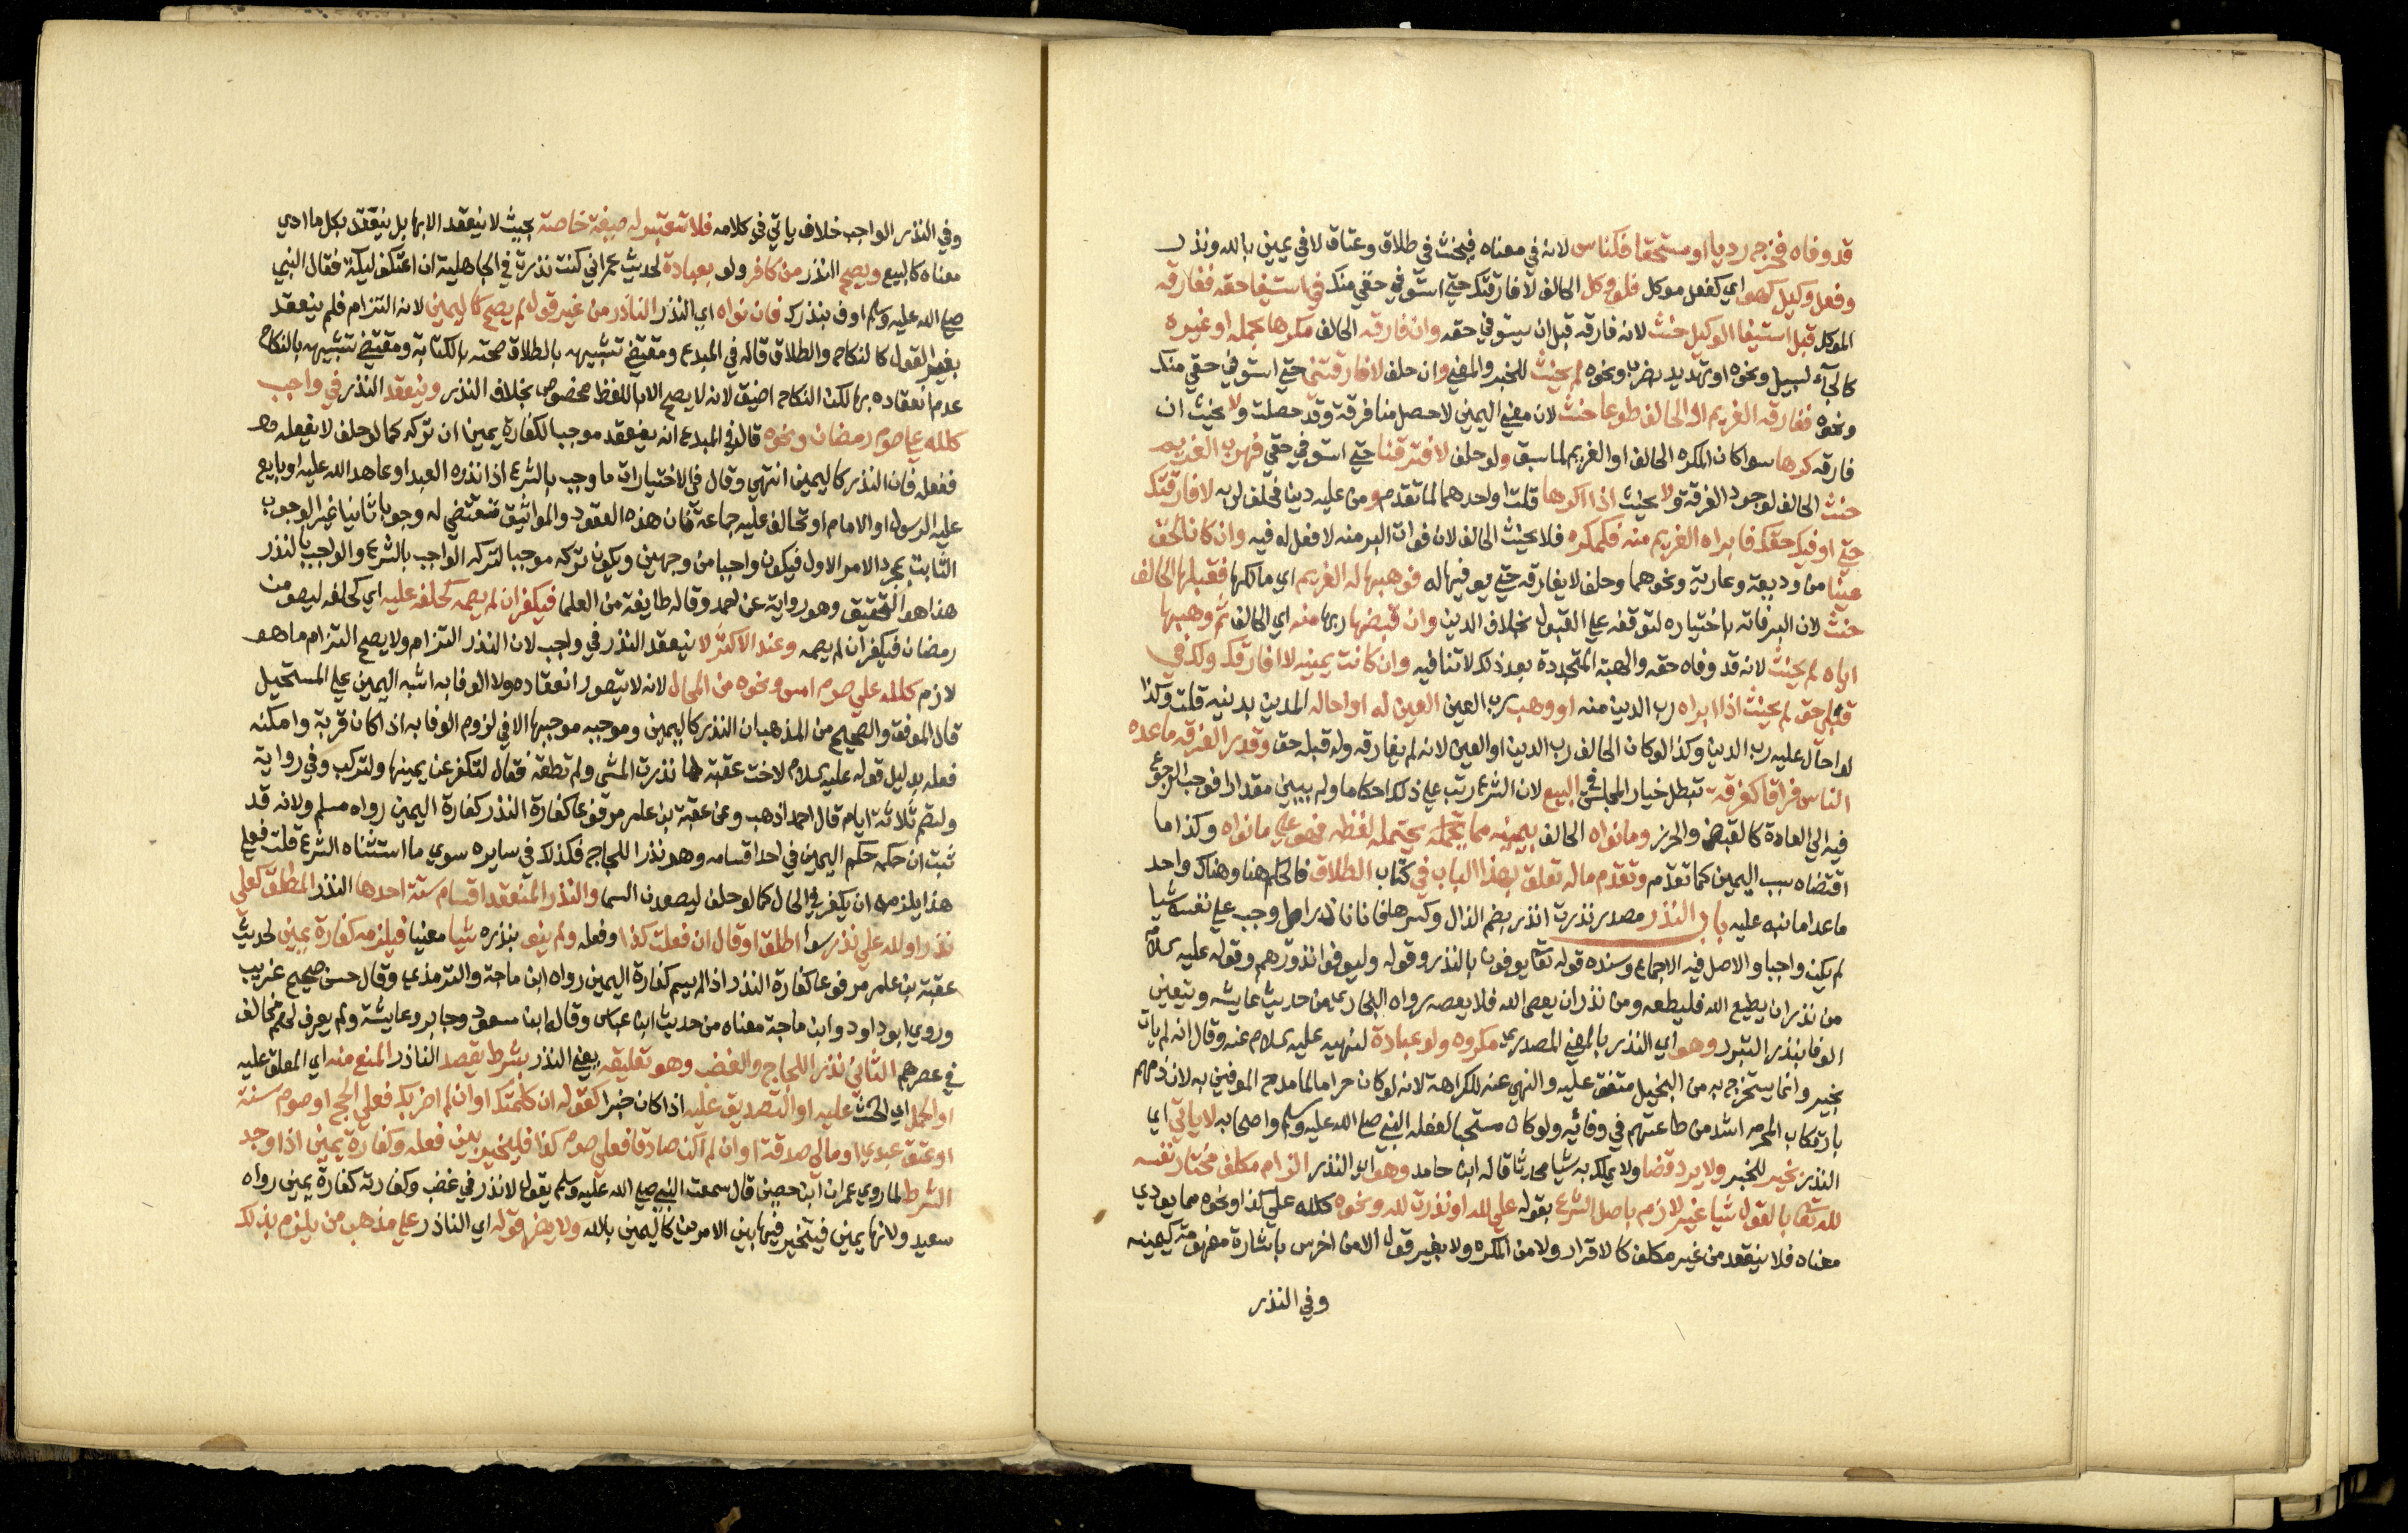 قد وفاه فخرج رديا او مستحقا فكناس لانه في معناه فيحنث في طلاق وعتاق لا في يمين بالله ونذر
وفعل وكيل كهو اي كفعل موكل فلو وكل الحالف لا فارقتك حتى استوفي حقي منك في استيفا حقه ففارقه
الموكل قبل استيفا الوكيل حنث لانه فارقه قبل ان يستوفي حقه وان فارقه الحالف مكرها بحمله او غيره
كالجاء لسيل ونحوه او تهديد بضرب ونحوه لم يحنث للخبر والمعنى وان حلف لا فارقتني حتى استوفي حقي منك
ونحوه ففارقه الغريم او الحالف طوعا حنث لان معنى اليمين لا حصل منا فرقة وقد حصلت ولا يحنث ان
فارقه كرها سوا كان المكره الحالف او الغريم لما سبق ولو حلف لا افترقنا حتى استوفي حقي فهرب الغريم
حنث الحالف لوجود الفرقة ولا يحنث اذا اكرها قلت او احدهما لما تقدم ومن عليه دين فحلف لربه لا فارقتك
حتى اوفيك حقك فابراه الغريم منه فكمكره فلا يحنث الحالف لان فوات البر منه لا فعل له فيه وان كان الحق
عينا من وديعة وعارية ونحوهما وحلف لا يفارقه حتى يوفيها له فوهبها له الغريم اي مالكها فقبلها الحالف
حنث لان البر فاته باختياره لتوقفه على القبول بخلاف الدين وان قبضها ربها منه اي الحالف ثم وهبها
اياه لم يحنث لانه قد وفاه حقه والهبة المتجددة بعد ذلك لا تنافيه وان كانت يمينه لا افارقك ولك في
قبلي حق لم يحنث اذا ابراه رب الدين منه او وهب رب العين العين له او احاله المدين بدينه قلت وكذا
لو احال عليه رب الدين وكذا لو كان الحالف رب الدين او العين لانه لم يفارقه وله قبله حق وقدر الفرقة ما عده
الناس فراقا كفرقة تبطل خيار المجلس في البيع لان الشرع رتب على ذلك احكاما ولم يبين مقدارا فوجب الرجوع
فيه الى العادة كالقبض والحرز وما نواه الحالف بيمينه مما يحتمله لفظه فهو على ما نواه وكذا ما
اقتضاه سبب اليمين كما تقدم وتقدم ما له تعلق بهذا الباب في كتاب الطلاق فالحكم هنا وهناك واحد
ما عدا ما نبه عليه باب النذر مصدر نذرت انذر بضم الذال وكسرها فانا ناذر اي وجب على نفسه شيا
لم يكن واجبا والاصل فيه الاجماع وسنده قوله تعالى يوفون بالنذر وقوله وليوفوا نذورهم وقوله عليه السلام
من نذر ان يطيع الله فليطعه ومن نذر ان يعصي الله فلا يعصه رواه البخاري من حديث عايشة ويتعين
الوفا بنذر التبرر وهو اي النذر بالمعنى المصدري مكروه ولو عبادة لنهيه عليه السلام عنه وقال انه لم يات
بخير وانما يستخرج به من البخيل متفق عليه والنهي عنه للكراهة لانه لو كان حراما لما مدح الموفين به لان ذمهم
بارتكاب المحرم اشد من طاعتهم في وفائه ولو كان مستحبا لفعله النبي صلى الله عليه وسلم واصحابه لا ياتي اي
النذر بخير للخبر ولا يرد قضا ولا يملك به شيا محدثا قاله ابن حامد وهو اي النذر الزام مكلف مختار نفسه
لله تعالى بالقول شيا غير لازم باصل الشرع بقوله علي لله او نذرت لله ونحوه كلله علي كذا ونحوه مما يودي
معناه فلا ينعقد من غير مكلف كالاقرار ولا من المكره ولا بغير قول الا من اخرس باشارة مفهومة كيمينه
وفي النذر
وفي النذر الواجب خلاف ياتي في كلامه فلا تعتبر له صيغة خاصة بحيث لا ينعقد الا بها بل ينعقد بكل ما ادى
معناه كالبيع ويصح النذر من كافر ولو بعبادة لحديث عمر اني كنت نذرت في الجاهلية ان اعتكف ليلة فقال النبي
صلى الله عليه وسلم اوف بنذرك فان نواه اي النذر الناذر من غير قول لم يصح كاليمين لانه التزام فلم ينعقد
بغير القول كالنكاح والطلاق قاله في المبدع ومقتضى تشبيهه بالطلاق صحته بالكتابة ومقتضى تشبيهه بالنكاح
عدم انعقاده بها لكن النكاح اضيق لانه لا يصح الا باللفظ مخصوص بخلاف النذر وينعقد النذر في واجب
كلله علي صوم رمضان ونحوه قال في المبدع انه ينعقد موجب الكفارة يمين ان تركه كما لو حلف لا يفعله
ففعله فان النذر كاليمين انتهى وقال في الاختيارات ما وجب بالشرع اذا نذره العبد او عاهد الله عليه او بايع
عليه الرسول او الامام او تحالف عليه جماعة فان هذه العقود والمواثيق تقتضي له وجوبا ثانيا غير الوجوب
الثابت بمجرد الامر الاول فيكون واجبا من وجهين ويكون تركه موجبا لترك الواجب بالشرع والواجب بالنذر
هذا هو التحقيق وهو رواية عن احمد وقاله طايفة من العلما فيكفر ان لم يصمه كحلفه عليه اي كحلفه ليصومن
رمضان فيكفر ان لم يصمه وعند الاكثر لا ينعقد النذر في واجب لان النذر التزام ولا يصح التزام ما هو
لازم كلله علي صوم امس ونحوه من المحال لانه لا يتصور انعقاده ولا الوفا به اشبه اليمين على المستحيل
قال الموفق والصحيح من المذهب ان النذر كاليمين وموجبه موجبها الا في لزوم الوفا به اذا كان قربة وامكنه
فعله بدليل قوله عليه السلام لاخت عقبة لما نذرت المشي ولم تطقه فقال لتكفر عن يمينها ولتركب وفي رواية
ولتصم ثلاثة ايام قال احمد اذهب وعن عقبة بن عامر مرفوعا كفارة النذر كفارة اليمين رواه مسلم ولانه قد
ثبت ان حكمه حكم اليمين في احد اقسامه وهو نذر اللجاج فكذلك في سايره سوى ما استثناه الشرع قلت فعلى
هذا يلزمه ان يكفر في الحال كما لو حلف ليصعدن السما والنذر المنعقد اقسام ستة احدها النذر المطلق كعلي
نذر او لله علي نذر سوا اطلق او قال ان فعلت كذا وفعله ولم ينو بنذره شيا معينا فيلزمه كفارة يمين لحديث
عقبة بن عامر مرفوعا كفارة النذر اذا لم يسم كفارة اليمين رواه ابن ماجة والترمذي وقال حسن صحيح غريب
وروى ابو داود وابن ماجة معناه من حديث ابن عباس وقاله ابن مسعود وجابر وعايشة ولم يعرف لهم مخالف
في عصرهم الثاني نذر اللجاج والغضب وهو تعليقه يعني النذر بشرط يقصد الناذر المنع منه اي المعلق عليه
او الحمل اي الحث عليه او التصديق عليه اذا كان خبرا كقوله ان كلمتك او ان لم اضربك فعلي الحج او صوم سنة
او عتق عبدي او مالي صدقة او ان لم اكن صادقا فعلي صوم كذا فيتخير بين فعله وكفارة يمين اذا وجد
الشرط لما روى عمران ابن حصين قال سمعت النبي صلى الله عليه وسلم يقول لا نذر في غضب وكفارته كفارة يمين رواه
سعيد ولانها يمين فيتخير فيها بين الامرين كاليمين بالله ولا يضر قوله اي الناذر على مذهب من يلزم بذلك